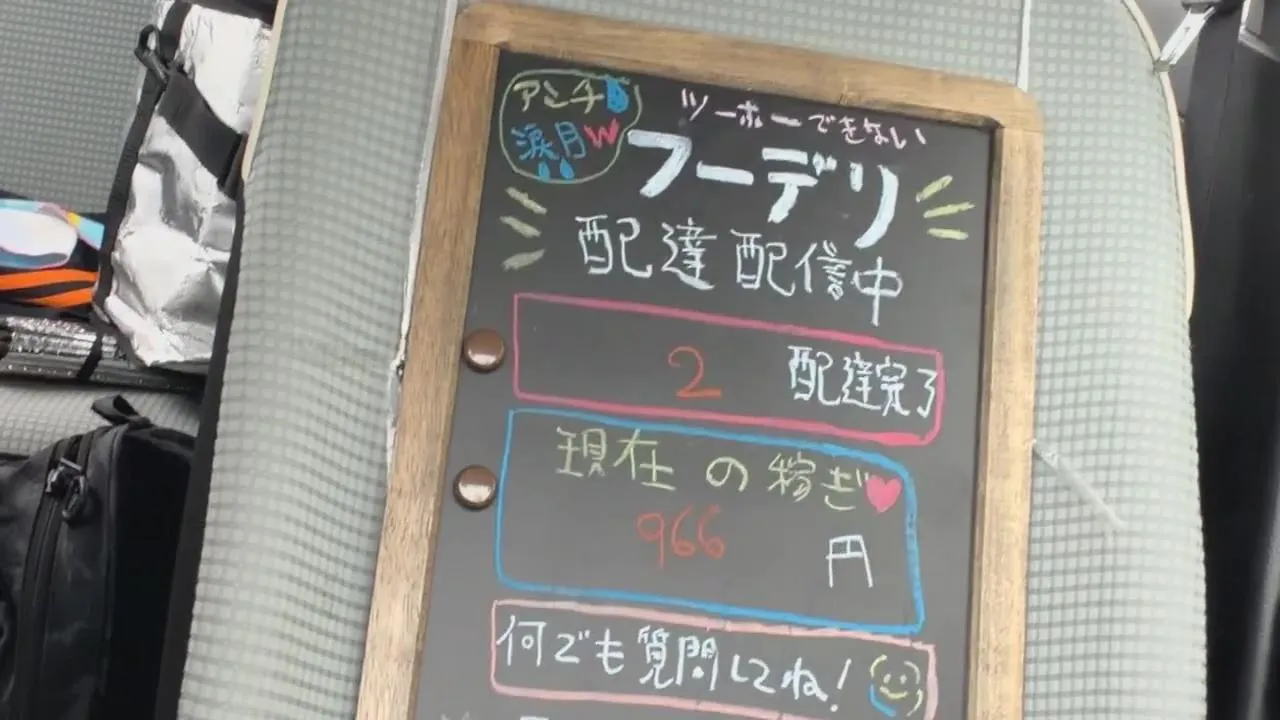 アンチ
涙月w
ツーホーできない
フーデリ
配達配信中
2 配達完了
現在の稼ぎ
966 円
何でも質問してね!